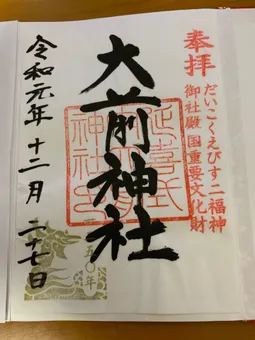 奉拝
だいこくえびす二福神
御社殿国重要文化財
大前神社
延喜式
神社
令和元年十二月二十七日
五〇年